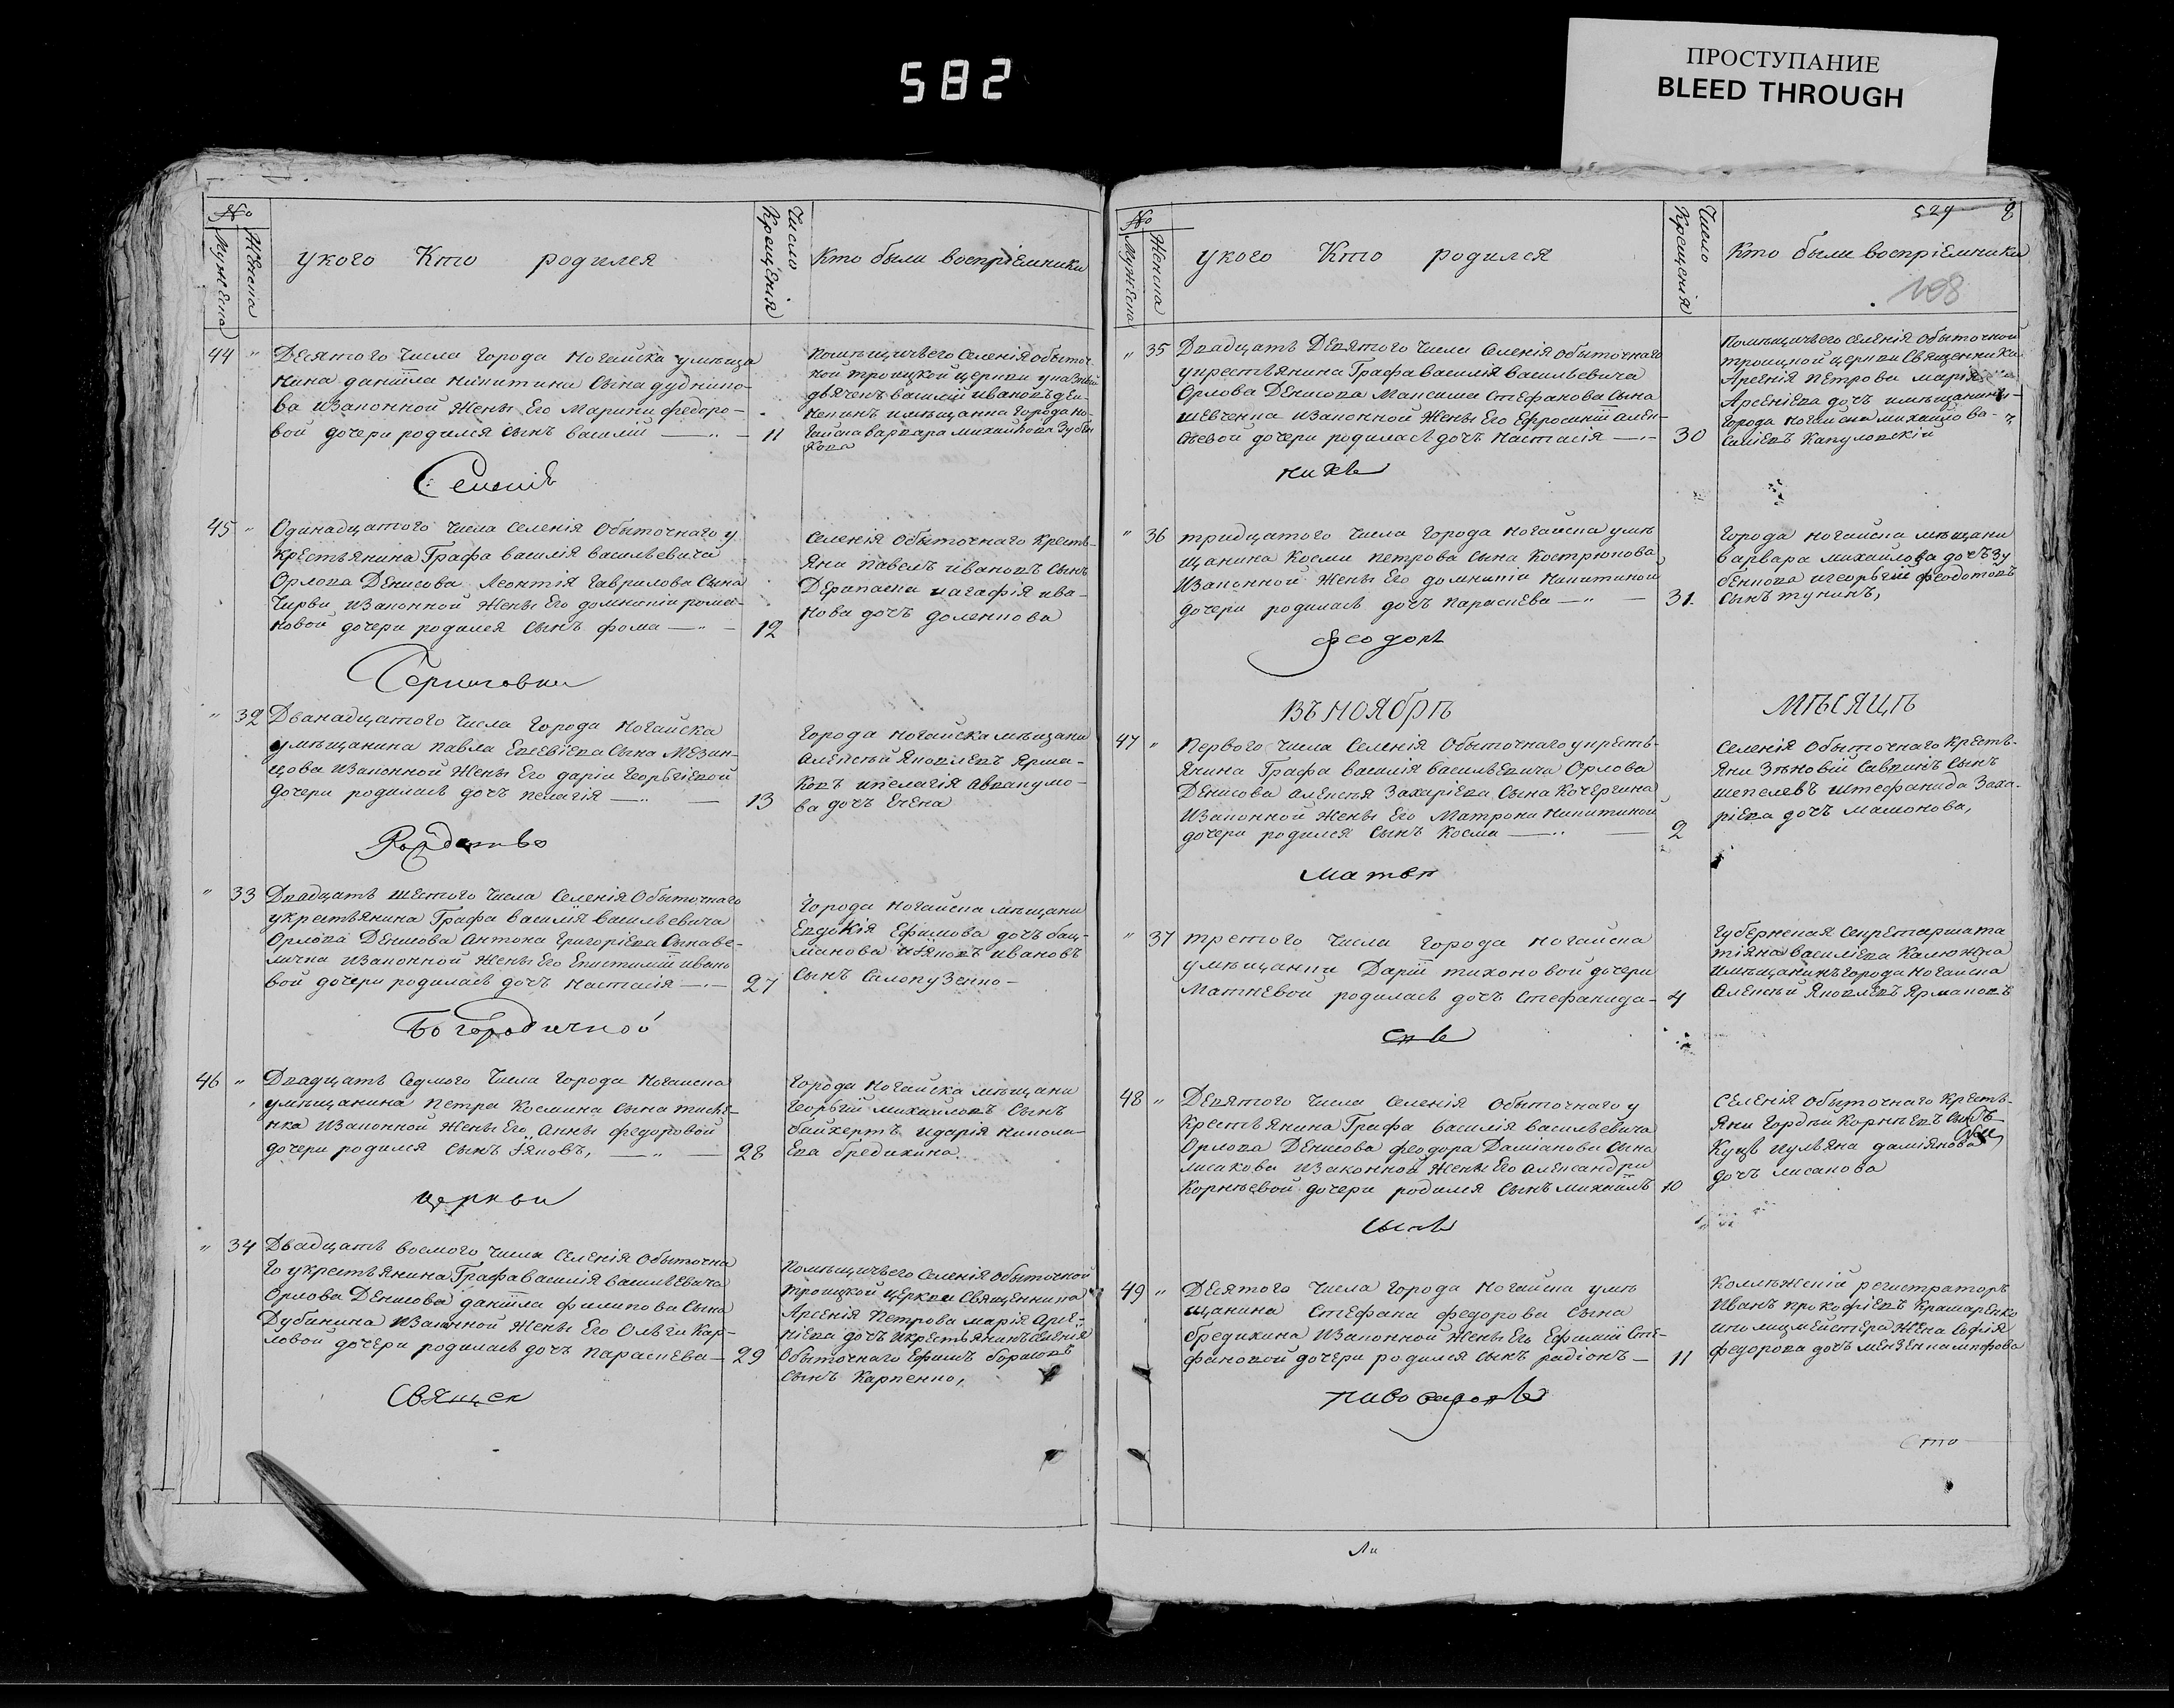 582
ПРОСТУПАНИЕ
BLEED THROUGH
№
Мужеска
Женска
укого Кто родился
Число Крещенія
Кто были воспріемники
44 " Десятого числа города Ногайска умѣща
нина даніила никитина сына дуднико-
ва изаконной жены его Марини федоро-
вой дочери родился сынъ василій — " — 11
помѣщичьего селенія обыточ
ной троицкой церкви
дьяченъ василій ивановъ
имѣщанка города но-
гайска варвара михайлова Зубен
кова
Селенія
45 " Одинадцатого числа селенія Обыточнаго у
крестьянина Графа василія васильевича
Орлова Денисова Леонтія гаврилова сына
Чирвы изаконной жены его домникіи рома-
новой дочери родился сынъ фома — " — 12
селенія обыточнаго кресть-
яни павелъ ивановъ сынъ
Дерипаска иагафія ива-
нова дочъ доленкова
" 32 Дванадцатого числа города Ногайска
умѣщанина павла сына Мезин-
цова изаконной жены его даріи георгіевой
дочери родилась дочъ пелагія — " — 13
города ногайска мѣщани
алексѣй яковлевъ ярма-
ковъ ипелагія авакумо-
ва дочъ
Рождество
" 33 Двадцать шестого числа селенія Обыточнаго
укрестьянина Графа василія васильевича
Орлова Денисова антона григоріева сына ве-
личка изаконной жены его епистиміи ивано
вой дочери родилась дочъ настасія — " — 27
города ногайска мѣщани
Евдокія Ефимова дочъ бац-
манова иіяковъ ивановъ
сынъ
Богородичной
46 " Двадцать седмого числа города Ногайска
умѣщанина петра космина сына тисче-
нка изаконной жены его анны федоровой
дочери родился сынъ іяковъ, — " — 28
города ногайска мѣщани
георгій михайловъ сынъ
байхертъ идарія никола-
ева бредихина.
церкви
" 34 Двадцать восмого числа селенія Обыточна
го укрестьянина Графа василія васильевича
Орлова Денисова даніила филипова сына
Дубинина изаконной жены его Ольги кар-
ловой дочери родилась дочъ параскева — 29
помѣщичьего селенія обыточной
троицкой церкви священника
Арсенія петрова марія арсе-
ніева дочъ икрестьянинъ селенія
обыточнаго Ефимъ борисовъ
сынъ Карпенко,
Священ
№
Мужеска
Женска
укого Кто родился
Число Крещенія
Кто были воспріемники
529
108
" 35 Двадцать Девятого числа селенія обыточнаго
укрестьянина Графа василія васильевича
Орлова Денисова Максима стефанова сына
шевченка изаконной жены его Ефросиніи алек-
сѣевой дочери родилась дочъ настасія — " — 30
помѣщичьего селенія обыточной
троицкой церкви священника
Арсенія петрова марія
Арсеніева дочъ имѣщанинъ
города ногайска михайло ва-
силіевъ капуловскій
никъ
" 36 тридцатого числа города ногайска умѣ
щанина косми петрова сына кострюкова
изаконной жены его домникіи никитиной
дочери родилась дочъ параскева — " — 31.
города ногайска мѣщани
варвара михайлова дочъ зу
бенкова игеоргій федотовъ
сынъ тунинъ,
феодоръ
въ ноябрѣ мѣсяцѣ
47 " первого числа селенія Обыточнаго укресть-
янина Графа василія васильевича Орлова
Денисова алексѣя захаріева сына кочергина
изаконной жены его матрони никитиной
дочери родился сынъ косма — " — 2
селенія обыточнаго кресть-
яни Зѣновій савкинъ сынъ
шепелевъ истефанида Заха-
ріева дочъ мамонова,
матвѣ
" 37 третого числа города ногайска
умѣщанки Даріи тихоновой дочери
Матневой родилась дочъ стефанида — 4
губернская секретарша та
тіяна василіева калюжна
имѣщанинъ города ногайска
алексѣй яковлевъ ярмаковъ
48 " Девятого числа селенія обыточнаго у
крестьянина Графа василія васильевича
Орлова Денисова феодора Даміанова сына
лисакова изаконной жены его александри
корнѣевой дочери родился сынъ михаилъ 10
селенія обыточнаго кресть-
яни гордѣй корнѣевъ сынъ
куцъ иульяна даміянова
дочъ лисакова
сынъ
49 " Десятого числа города ногайска умѣ
щанина стефана федорова сына
бредихина изаконной жены его Ефиміи сте-
фановой дочери родился сынъ радіонъ — 11
коллѣжскій регистраторъ
иванъ прокофіевъ крамаренко
иполицмейстера жена софія
федорова дочъ
пивоваровъ